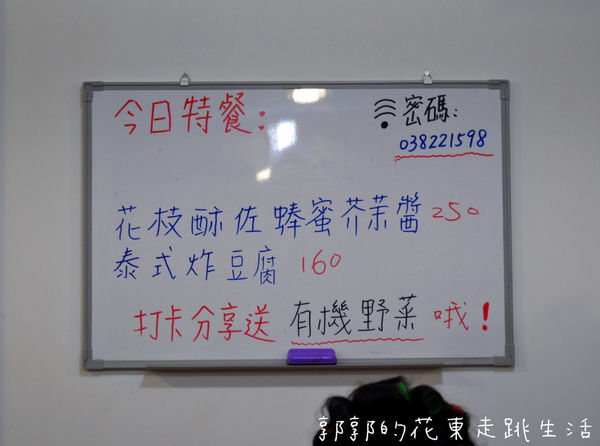 今日特餐:
密碼:
038221598
花枝酥佐蜂蜜芥茉醬250
泰式炸豆腐 160
打卡分享送 有機野菜 哦!
郭郭的花東走跳生活